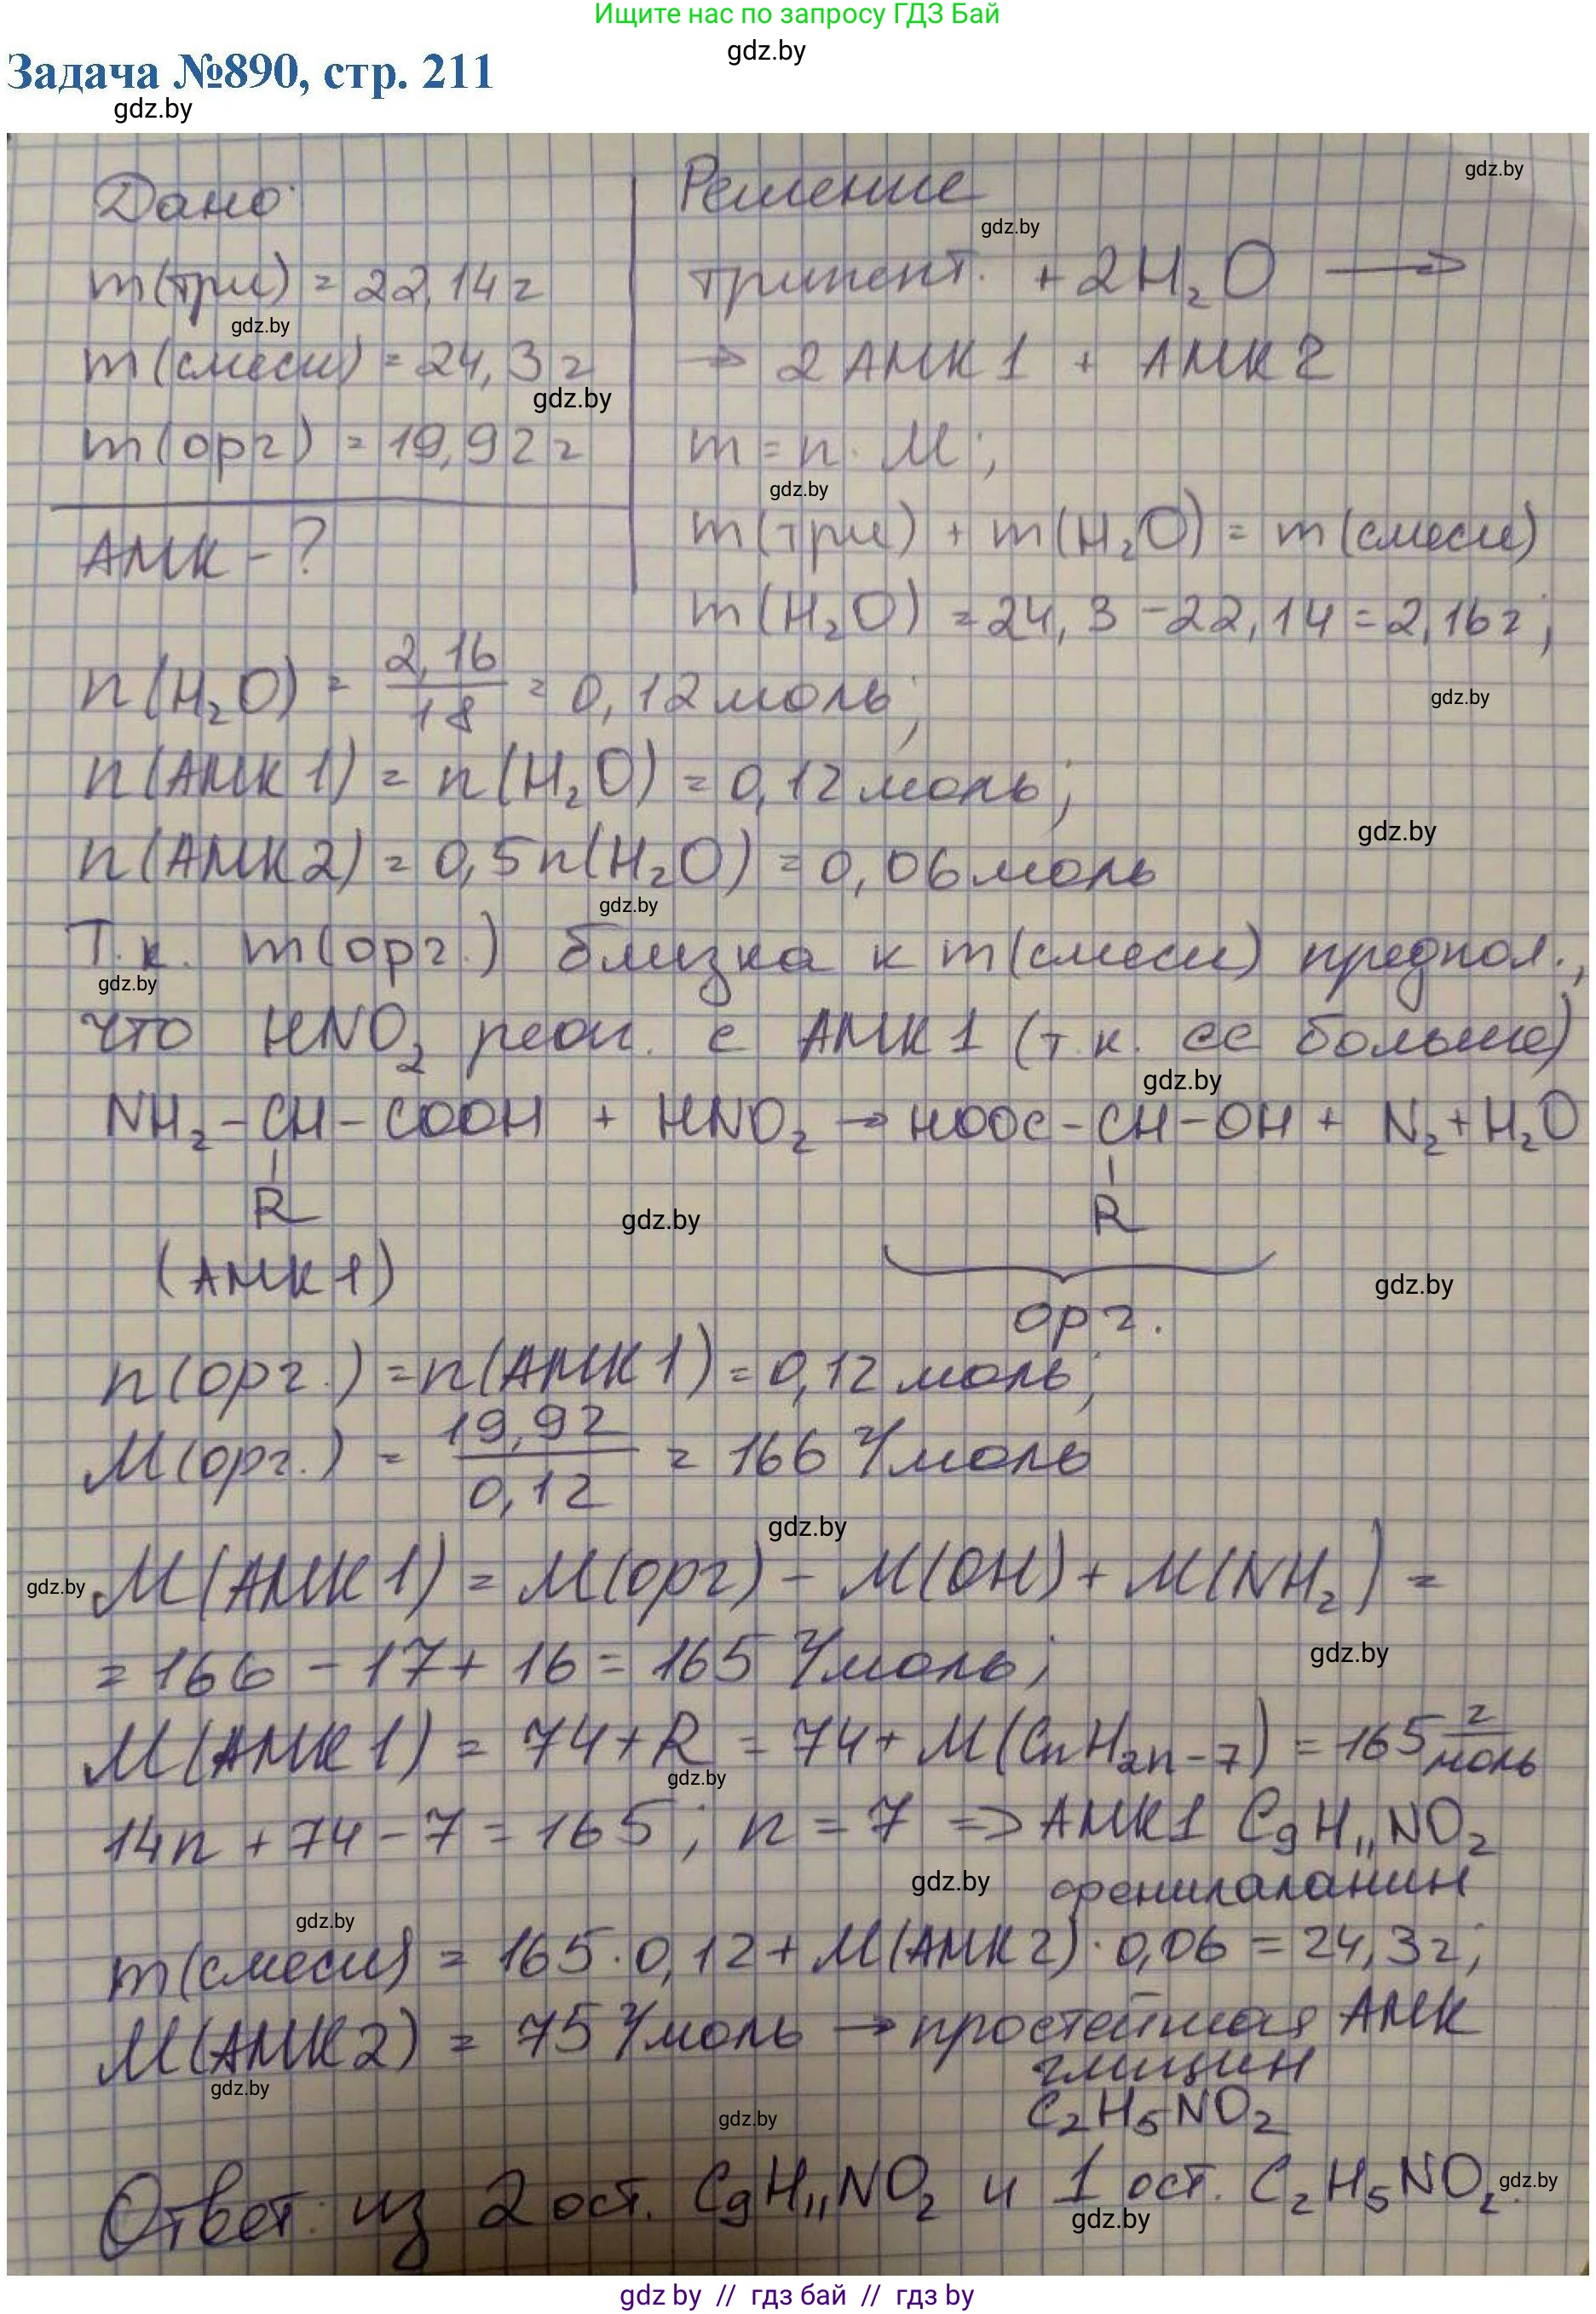 Ищите нас по запросу ГДЗ Бай
gdz.by
Задача №890, стр. 211
gdz.by
Дано:
m(три) = 22,14 г
gdz.by
m(смеси) = 24,3 г
gdz.by
m(орг) = 19,92 г
АМК - ?
Решение
gdz.by
gdz.by
трипепт. + 2H₂O ⟶
→ 2 АМК 1 + АМК 2
m = n · M;
gdz.by
m(три) + m(H₂O) = m(смеси)
m(H₂O) = 24,3 - 22,14 = 2,16 г;
n(H₂O) = 2,16/18 = 0,12 моль;
gdz.by
n(АМК 1) = n(H₂O) = 0,12 моль;
gdz.by
n(АМК 2) = 0,5n(H₂O) = 0,06 моль
gdz.by
Т.к. m(орг.) близка к m(смеси) предпол.,
gdz.by
что HNO₂ реаг. с АМК 1 (т.к. ее больше)
gdz.by
NH₂-CH-COOH + HNO₂ → HOOC-CH-OH + N₂ + H₂O
R R
gdz.by
(АМК 1)
gdz.by
орг.
n(орг.) = n(АМК 1) = 0,12 моль;
M(орг.) = 19,92/0,12 = 166 г/моль
gdz.by
M(АМК 1) = M(орг) - M(OH) + M(NH₂) =
gdz.by
= 166 - 17 + 16 = 165 г/моль;
gdz.by
M(АМК 1) = 74 + R = 74 + M(CnH2n-7) = 165 г/моль
gdz.by
14n + 74 - 7 = 165; n = 7 => АМК1 C₉H₁₁NO₂
gdz.by
фенилаланин
gdz.by
m(смеси) = 165 · 0,12 + M(АМК 2) · 0,06 = 24,3 г;
M(АМК 2) = 75 г/моль → простейшая АМК
глицин
gdz.by
C₂H₅NO₂
gdz.by
Ответ: из 2 ост. C₉H₁₁NO₂ и 1 ост. C₂H₅NO₂.
gdz.by
gdz.by
gdz by // гдз бай // гдз by